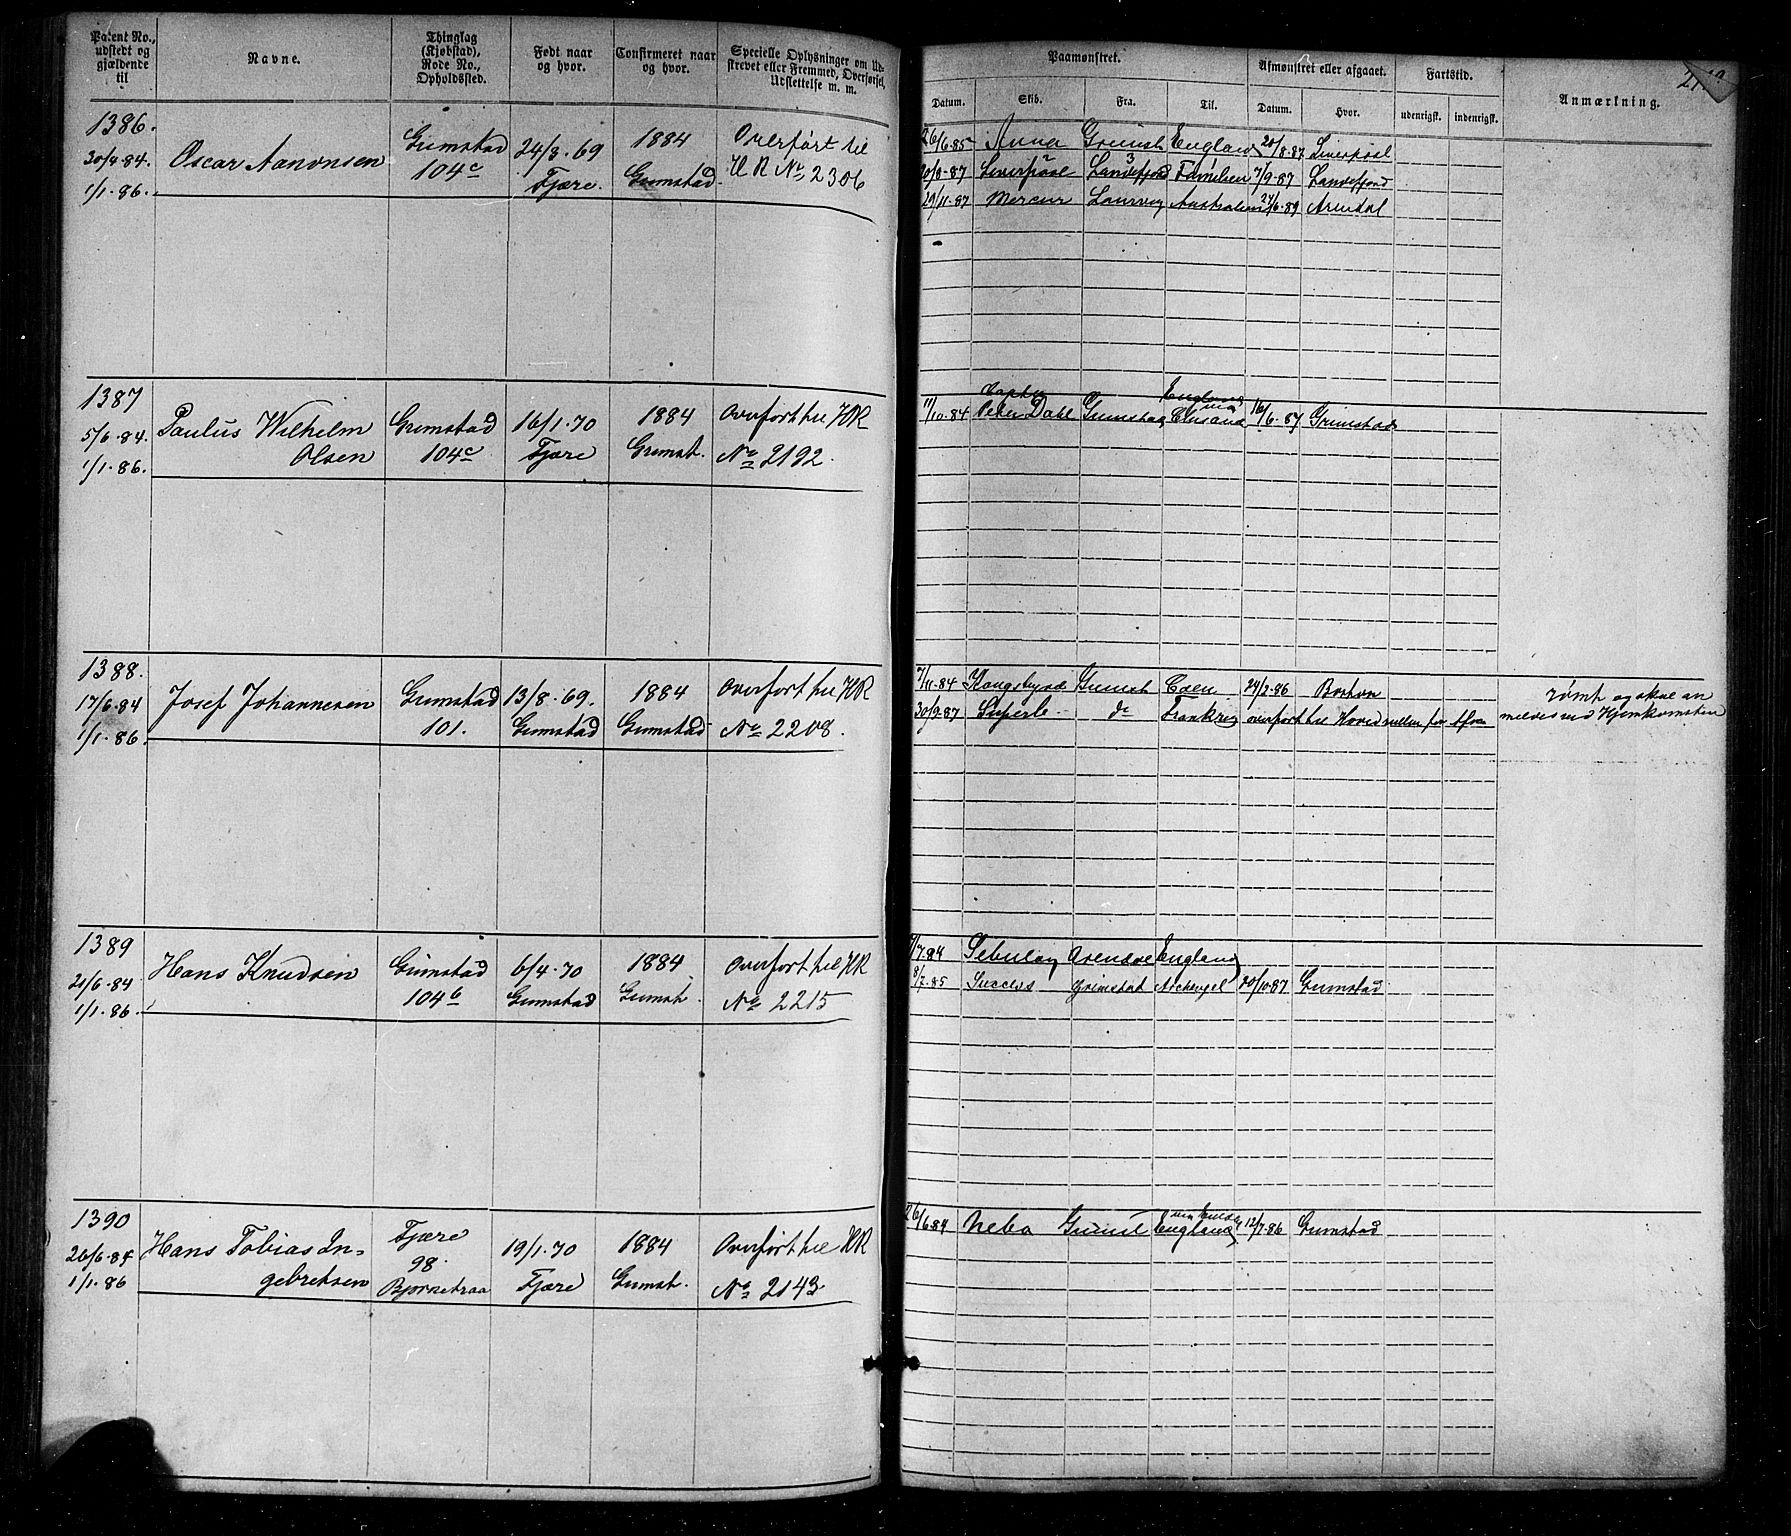 Patent No., udstedt og gjældende til
Navne.
Thinglag (Kjøbstad), Rode No., Opholdssted.
Født naar og hvor.
Confirmeret naar og hvor.
Specielle Oplysninger om Udstrevet eller Fremmed, Overførsel, Udslettelse m. m.
Paamønstret.
Datum.
Skib.
Fra.
Til.
Afmønstret eller afgaaet.
Datum.
Hvor.
Fartstid.
udenrigsk.
indenrigsk.
Anmærkning.
1386.
30/4-84.
1/1-86.
Oscar Aanonsen
Grimstad
104c
24/8-69
Fjære.
1884
Grimstad.
Overført til
HR No 2306
26/6-85 Anna Grimst England 20/8-87 Liverpool
20/8-87 Liverpool Sandefjord 7/9-87 Sandefjord
29/11-87 Mercur Laurvig Australien 24/6-89 Arendal
1387
5/6-84.
1/1-86.
Paulus Wilhelm
Olsen
Grimstad
104c
16/1-70
Fjære
1884
Grimst.
Overført til HR
No 2192.
Captn England
11/10-84 Peter Dahl Grimstad 16/6-87 Grimstad
1388.
17/6-84
1/1-86.
Josef Johannesen
Grimstad
101.
13/8-69.
Grimstad
1884
Grimstad
Overført til HR
No 2208.
7/11-84 Kongsbyrde Grimst Caen 24/2-86 Boston
rømt og skal an
30/9-87 Superb do Frankrig overført til Hovedrullen
meldes ved Hjemkomsten
1389
21/6-84
1/1-86.
Hans Knudsen
Grimstad
104b
6/4-70
Grimstad
1884
Grimst.
Overført til HR
No 2215
7/7-84 Sebulon Arendal England
8/7-85 Success Grimstad Archangel 20/10-87 Grimstad
1390
26/6-84
1/1-86
Hans Tobias In=
gebretsen
Fjære
98.
Bjørnetraa
19/1-70
Fjære
1884
Grimst.
Overført til HR
No 2143
26/6-84 Neba Grimst England 12/7-86 Grimstad